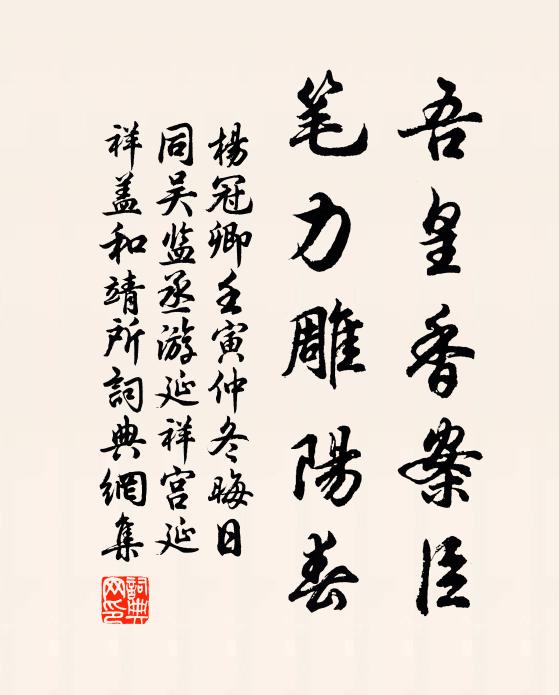 吾皇香案臣
笔力雕陽春
楊冠卿壬寅仲冬晦日
同吴监丞游延祥宫延
祥盖和靖所詞典網集
詞典网印